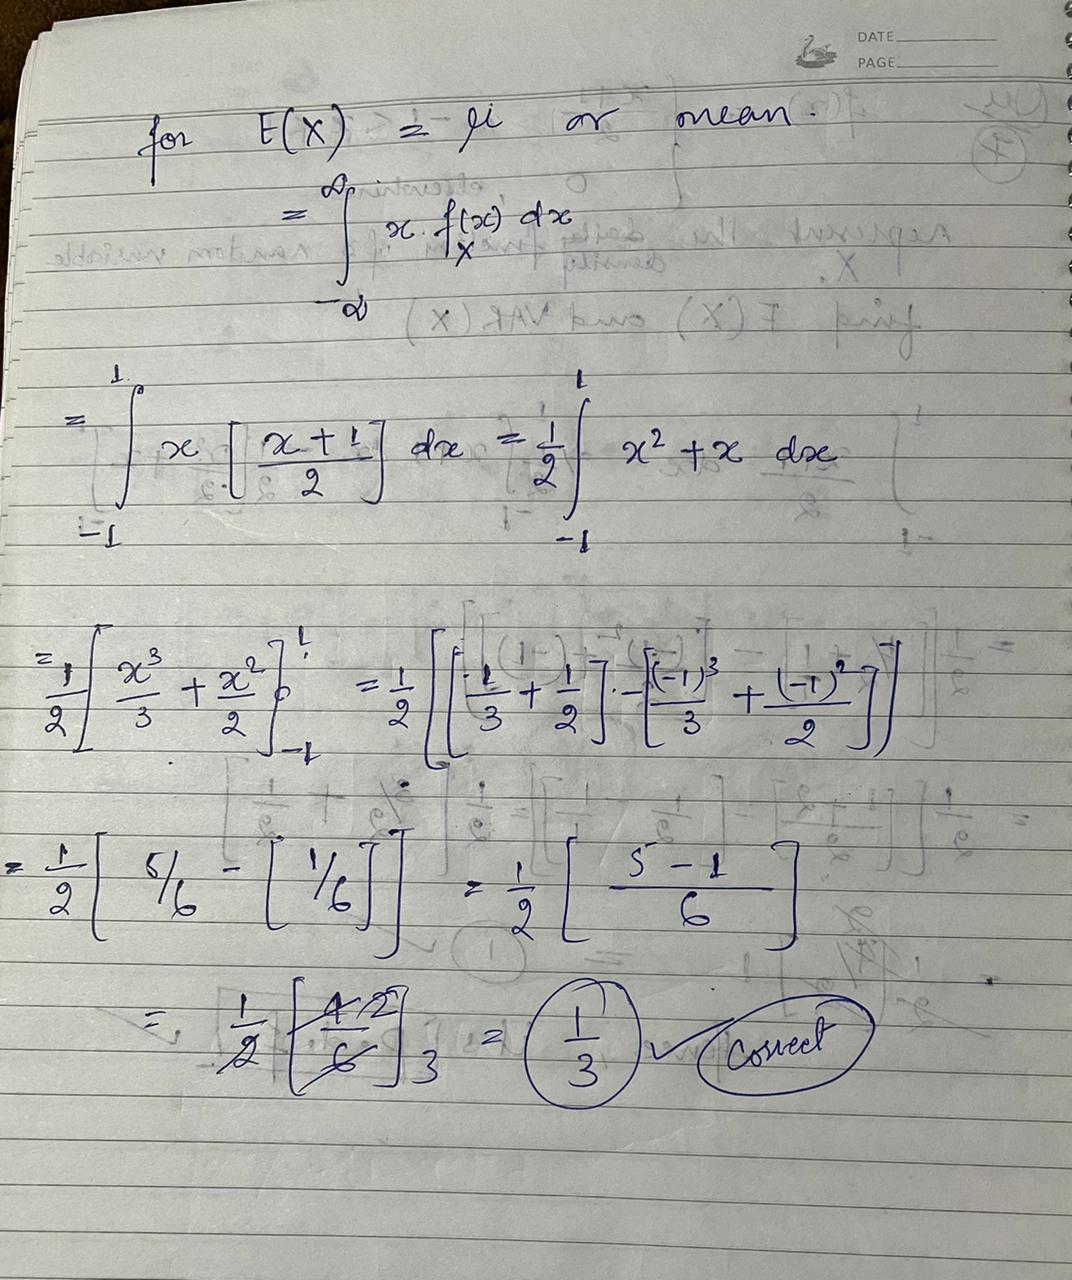 DATE
PAGE
for E(X) = μ or mean.
= ∫_{-∞}^{∞} x. f_X(x) dx
= ∫_{-1}^{1} x [x+1/2] dx = 1/2 ∫_{-1}^{1} x² + x dx
= 1/2 [x³/3 + x²/2]_{-1}^{1} = 1/2 [[1/3 + 1/2] - [(-1)³/3 + (-1)²/2]]
= 1/2 [5/6 - [1/6]] = 1/2 [5-1/6]
= 1/2 [4/6] 2 3 = 1/3 ✓ correct